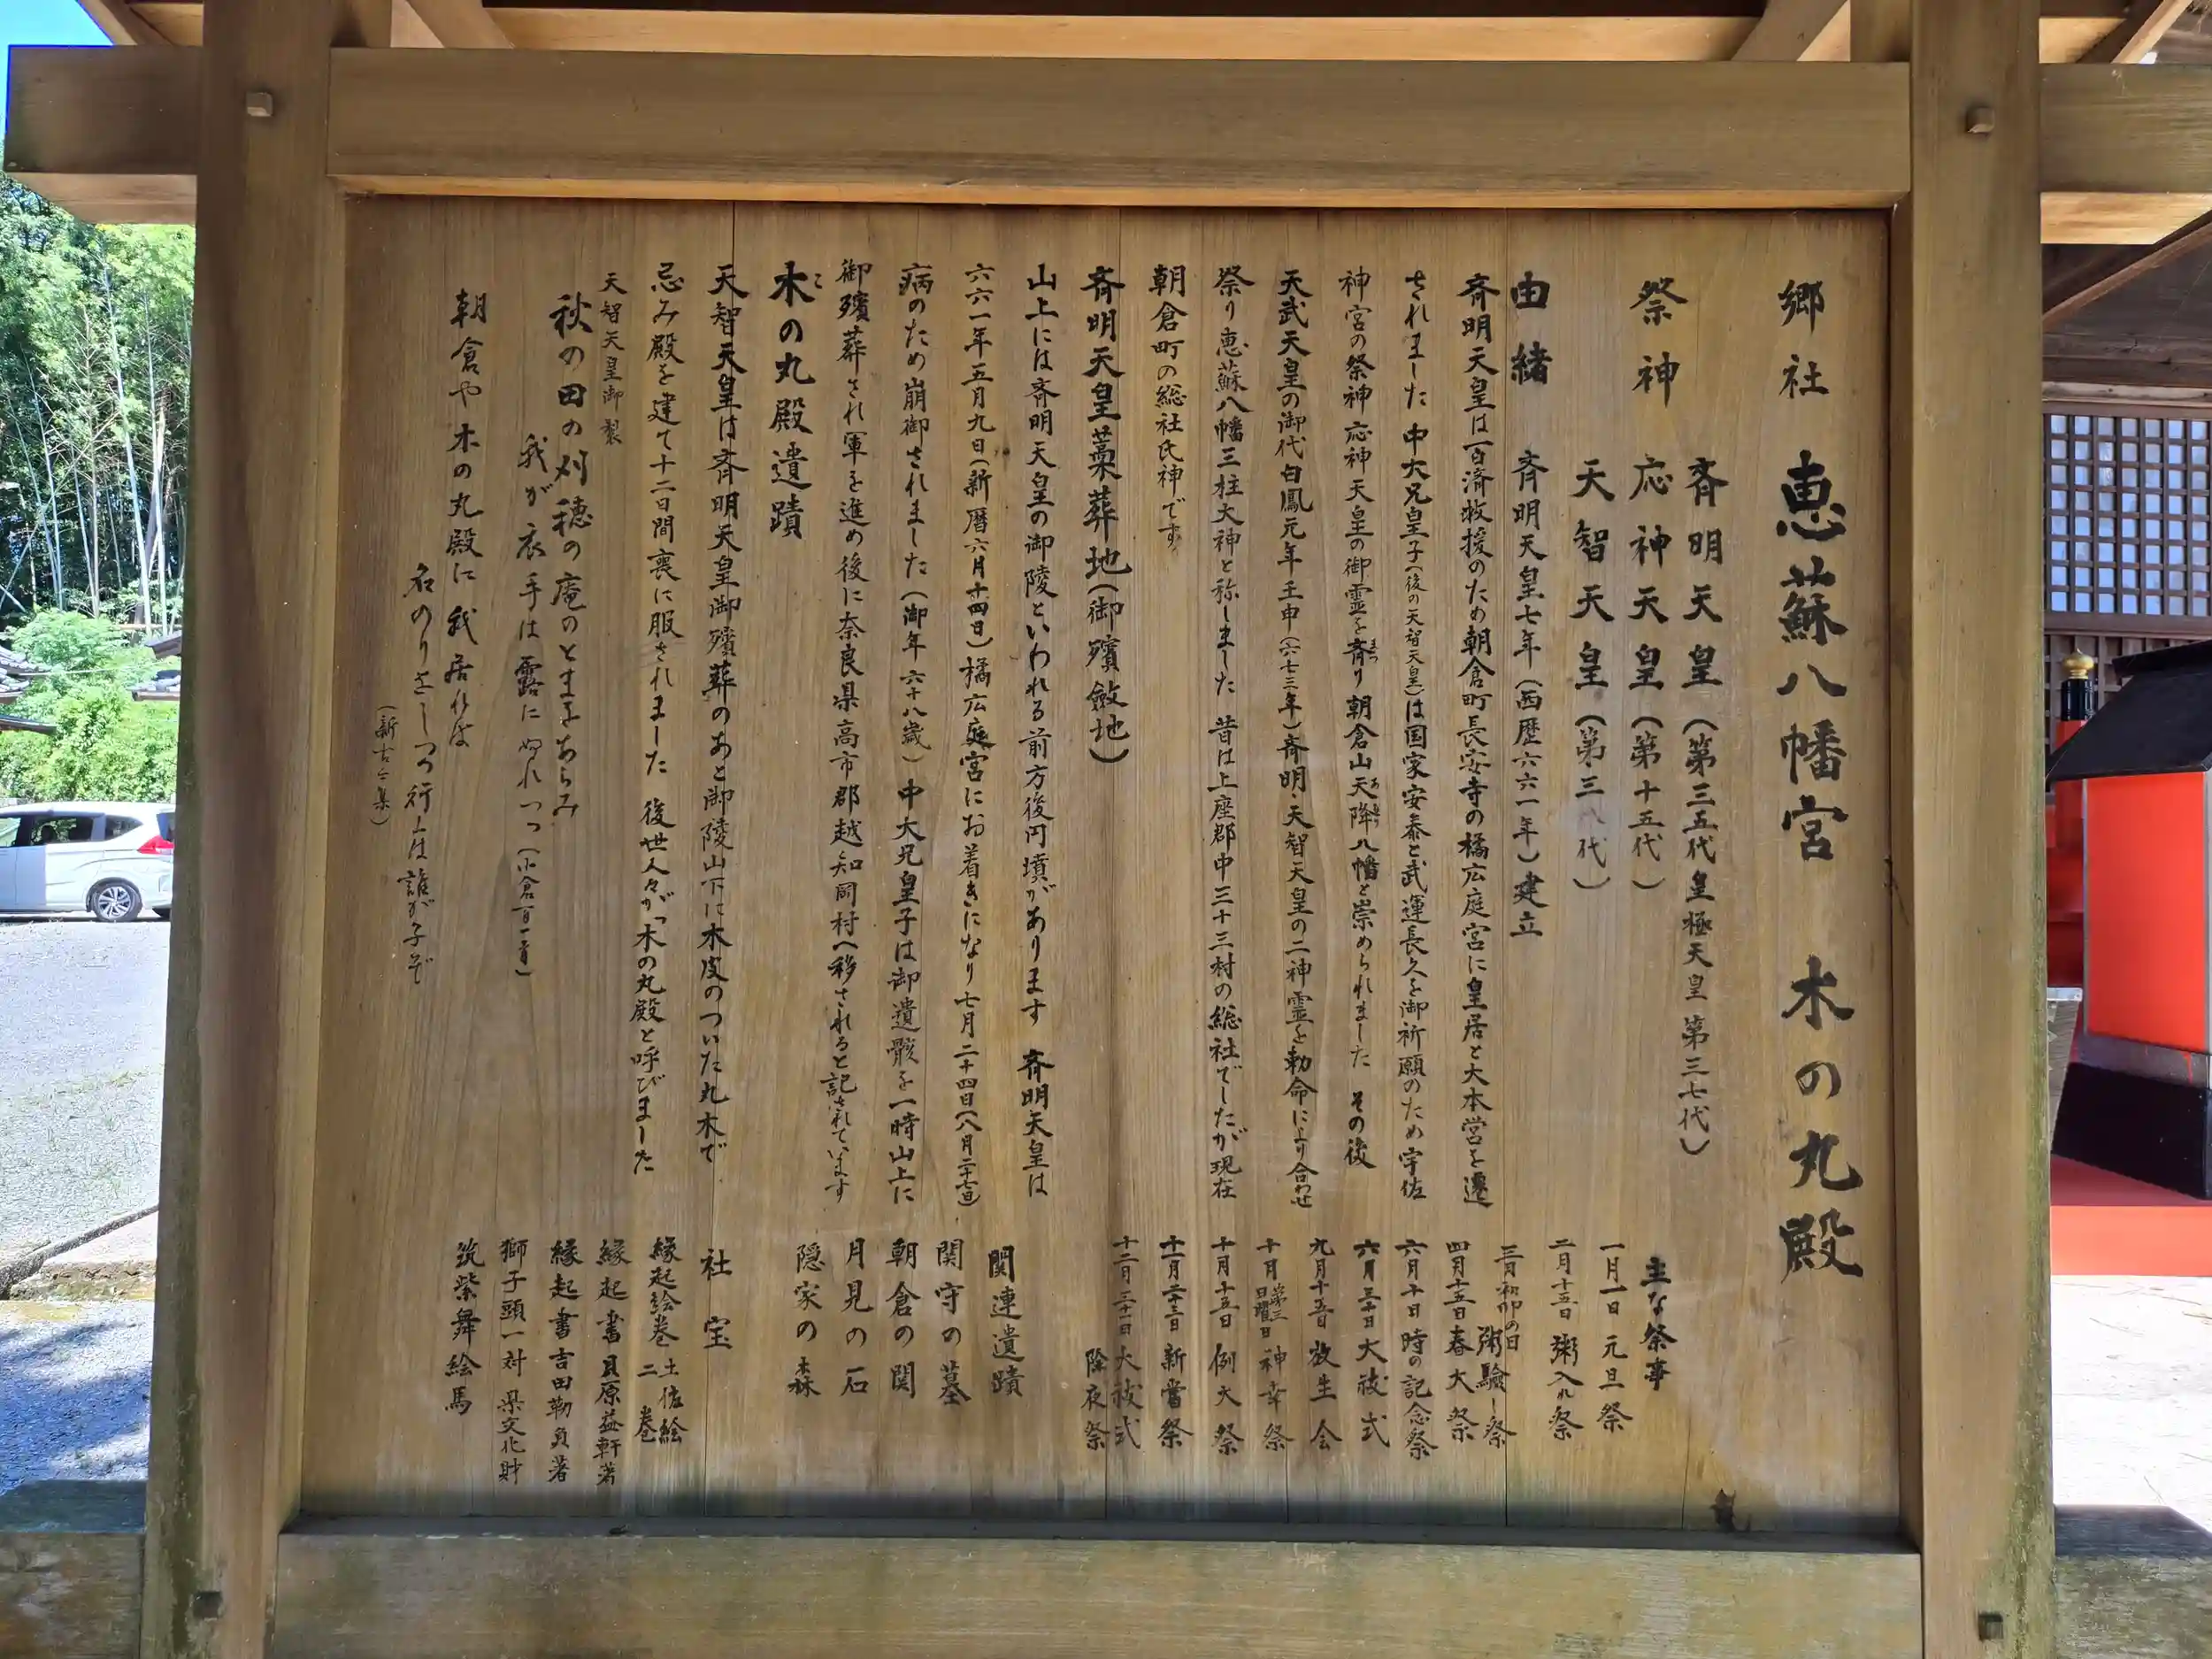 郷社 恵蘇八幡宮 木の丸殿
祭神 斉明天皇（第三五代皇極天皇 第三七代）
応神天皇（第十五代）
天智天皇（第三八代）
由緒 斉明天皇七年（西歴六六一年）建立
斉明天皇は百済救援のため朝倉町長安寺の橘広庭宮に皇居と大本営を遷
されました 中大兄皇子（後の天智天皇）は国家安泰と武運長久を御祈願のため宇佐
神宮の祭神応神天皇の御霊を斉り朝倉山天降八幡と崇められました その後
天武天皇の御代白鳳元年壬申（六七三年）斉明・天智天皇の二神霊を勅命により合わせ
祭り恵蘇八幡三柱大神と称しました 昔は上座郡中三十三村の総社でしたが現在
朝倉町の総社氏神です
斉明天皇藁葬地（御殯斂地）
山上には斉明天皇の御陵といわれる前方後円墳があります 斉明天皇は
六六一年五月九日（新暦六月十四日）橘広庭宮にお着きになり七月二十四日（八月二十七日）
病のため崩御されました（御年六十八歳）中大兄皇子は御遺骸を一時山上に
御殯葬され軍を進め後に奈良県高市郡越知岡村へ移されると記されています
木の丸殿遺蹟
天智天皇は斉明天皇御殯葬のあと御陵山下に木皮のついた丸木で
忌み殿を建て十二日間喪に服されました 後世人々が「木の丸殿と呼びました
天智天皇御製
秋の田の刈穂の庵のとまをあらみ
我が衣手は露にぬれつつ（小倉百一首）
朝倉や木の丸殿に我居れば
名のりをしつつ行くは誰が子ぞ
（新古今集）
主な祭事
一月一日 元旦祭
二月十五日 粥入れ祭
三月初卯の日 粥験し祭
四月十五日 春大祭
六月十日 時の記念祭
六月三十日 大祓式
九月十五日 放生会
十月第三日曜日 神幸祭
十月十五日 例大祭
十一月二十三日 新嘗祭
十二月三十一日 大祓式
除夜祭
関連遺蹟
関守の墓
朝倉の関
月見の石
隠家の森
社宝
縁起絵巻 土佐絵二巻
縁起書 貝原益軒著
縁起書 吉田勒負著
獅子頭一対 県文化財
筑紫舞絵馬